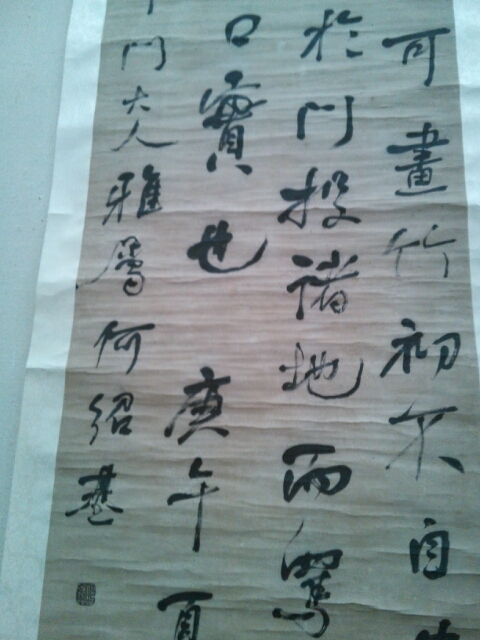 可畫竹初不自
於門投諸地而罵
口實也 庚午
門大人雅屬何紹基